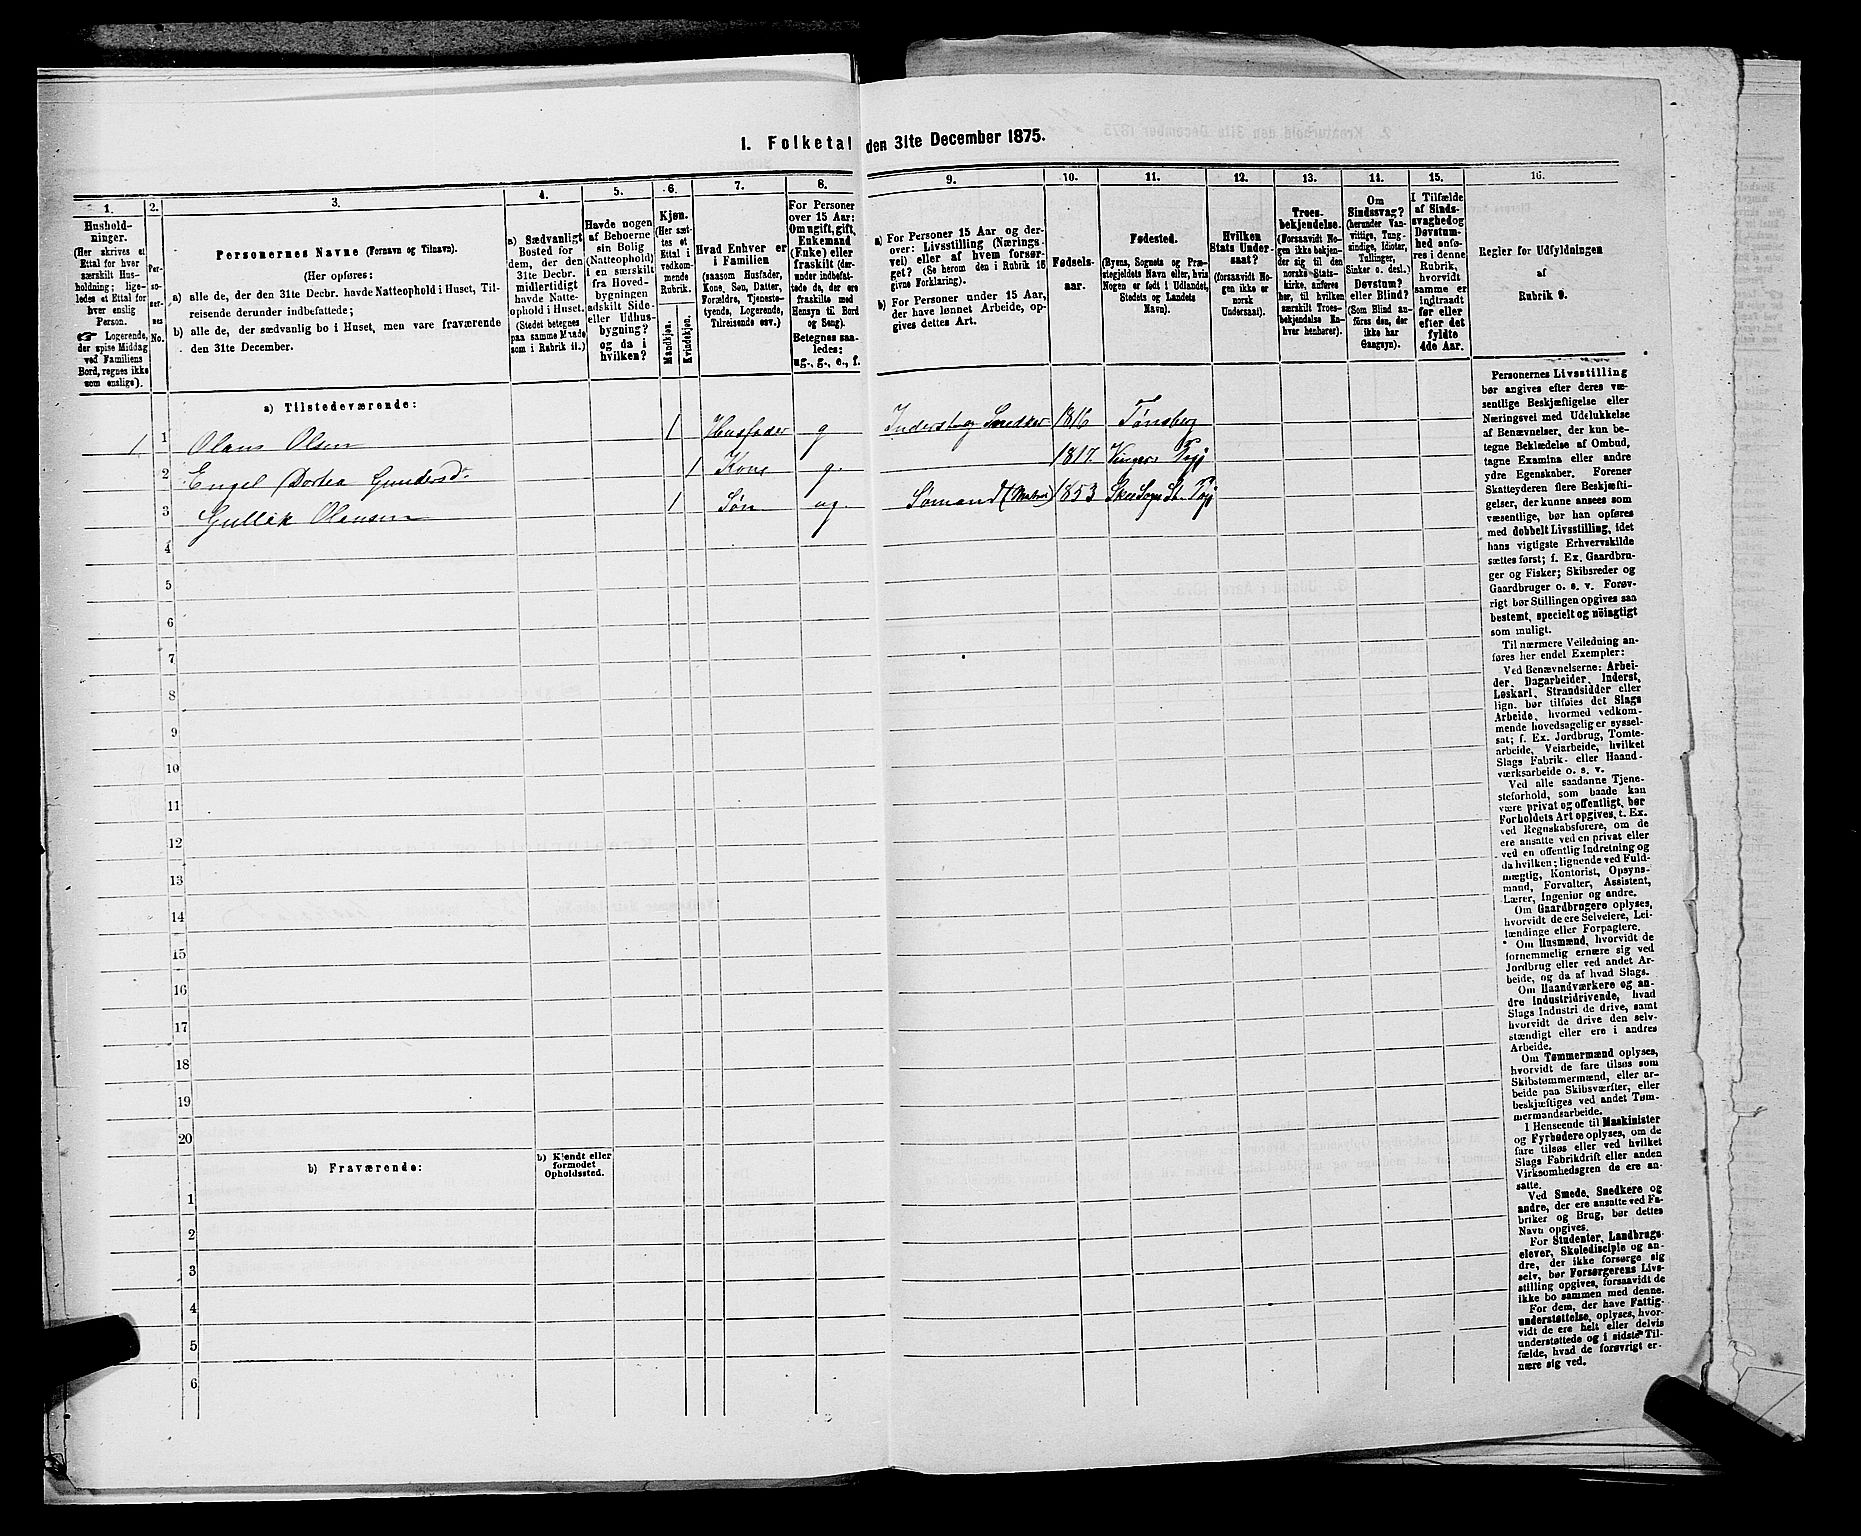 1. Folketal den 31te December 1875.
1.
2.
3.
4.
5.
6.
7.
8.
9.
10.
11.
12.
13.
14.
15.
16.
Hushold-
ninger.
(Her skrives et
Ettal for hver
særskilt Hus-
holdning; lige-
ledes et Ettal for
hver enslig
Person.
☞ Logerende,
der spise Middag
ved Familiens
Bord, regnes ikke
som enslige).
Per-
so-
ner-
nes
No.
Personernes Navne (Fornavn og Tilnavn).
(Her opføres:
a) alle de, der den 31te Decbr. havde Natteophold i Huset, Til-
reisende derunder indbefattede;
b) alle de, der sædvanlig bo i Huset, men vare fraværende
den 31te December.
a) Sædvanligt
Bosted for
dem, der den
31te Decbr.
midlertidigt
havde Natte-
ophold i Huset.
(Stedet betegnes
paa samme Maade
som i Rubrik 11.)
Havde nogen
af Beboerne
sin Bolig
(Natteophold)
i en særskilt
fra Hoved-
bygningen
adskilt Side-
eller Udhus-
bygning?
og da i
hvilken?
Kjøn.
(Her sæt-
tes et
Ettal i
vedkom-
mende
Rubrik.
Mandkjøn.
Kvindekjøn.
Hvad Enhver er
i Familien
(saasom Husfader,
Kone, Søn, Datter,
Forældre, Tjeneste-
tyende, Logerende,
Tilreisende osv.)
For Personer
over 15 Aar:
Om ugift, gift,
Enkemand
(Enke) eller
fraskilt (der-
under indbefat-
tede de, der ere
fraskilte med
Hensyn til Bord
og Seng).
Betegnes saa-
ledes:
ug., g., e., f.
a) For Personer 15 Aar og der-
over: Livsstilling (Nærings-
vei) eller af hvem forsør-
get? (Se herom den i Rubrik 16
givne Forklaring).
b) For Personer under 15 Aar,
der have lønnet Arbeide, op-
gives dettes Art.
Fødsels-
aar.
Fødested.
(Byens, Sognets og Præ-
stegjeldets Navn eller, hvis
Nogen er født i Udlandet,
Stedets og Landets
Navn).
Hvilken
Stats Under-
saat?
(forsaavidt No-
gen ikke er
norsk
Undersaat).
Troes-
bekjendelse.
(Forsaavidt No-
gen ikke bekjen-
der sig til den
norske Stats-
kirke, anføres
her, til hvilken
særskilt Troes-
bekjendelse En-
hver henhører).
Om
Sindssvag?
(herunder Van-
vittige, Tung-
sindige, Idioter,
Tullinger,
Sinker o. desl.)
Døvstum?
eller Blind?
(Som Blind an-
føres den, der
ikke har
Gangsyn).
I Tilfælde
af Sinds-
svaghed og
Døvstum-
hed anfø-
res i denne
Rubrik,
hvorvidt
samme er
indtraadt
før eller
efter det
fyldte
4de Aar.
Regler for Udfyldningen
af
Rubrik 9.
a) Tilstedeværende:
1 1 Olaus Olsen 1 Husfader g Inderst og Snedker 1816 Tønsberg
2 Engel Dortea Gundersd. 1 Kone g. 1817
3 Gullik Olausen 1 Søn ug. Sømand (Matros) 1853
4
5
6
7
8
9
10
11
12
13
14
15
16
17
18
19
20
b) Fraværende:
b) Kjendt eller
formodet
Opholdssted.
1
2
3
4
5
6
Personernes Livsstilling
bør angives efter deres væ-
sentlige Beskjæftigelse eller
Næringsvei med Udelukkelse
af Benævnelser, der kun be-
tegne Beklædelse af Ombud,
tagne Examina eller andre
ydre Egenskaber. Forener
Skatteyderen flere Beskjæfti-
gelser, der kunne ansees som
væsentlige, bør han opføres
med dobbelt Livsstilling, idet
hans vigtigste Erhvervskilde
sættes først; f. Ex. Gaardbru-
ger og Fisker; Skibsreder og
Gaardbruger o. s. v. Forøv-
rigt bør Stillingen opgives saa
bestemt, specielt og nøiagtigt
som muligt.
Til nærmere Veiledning an-
føres her endel Exempler:
Ved Benævnelserne: Arbei-
der, Dagarbeider, Inderst,
Løskarl, Strandsidder eller
lign. bør tilføies det Slags
Arbeide, hvormed vedkom-
mende hovedsagelig er syssel-
sat; f. Ex. Jordbrug, Tomte-
arbeide, Veiarbeide, hvilket
Slags Fabrik- eller Haand-
værksarbeide o. s. v.
Ved alle saadanne Tjene-
steforhold, som baade kan
være privat og offentligt, bør
Forholdets Art opgives, t. Ex.
ved Regnskabsførere, om de
ere ansatte ved en privat eller
ved en offentlig Indretning og
da hvilken; lignende ved Fuld-
mægtig, Kontorist, Opsyns-
mand, Forvalter, Assistent,
Lærer, Ingeniør og andre.
Om Gaardbrugere oplyses,
hvorvidt de ere Selveiere, Lei-
lændinge eller Forpagtere.
Om Husmænd, hvorvidt de
fornemmelig ernære sig ved
Jordbrug eller ved andet Ar-
beide, og da af hvad Slags.
Om Haandværkere og an-
dre Industridrivende, hvad
Slags Industri de drive, samt
hvorvidt de drive den selv-
stændigt eller ere i andres
Arbeide.
Om Tømmermænd oplyses,
hvorvidt de fare tilsøs som
Skibstømmermænd, eller ar-
beide paa Skibsværfter, eller
beskjæftiges ved andet Tøm-
mermandsarbeide.
I Henseende til Maskinister
og Fyrbødere oplyses, om de
fare tilsøs eller ved hvilket
Slags Fabrikdrift eller anden
Virksomhedsgren de ere an-
satte.
Ved Smede, Snedkere og
andre, der ere ansatte ved Fa-
briker og Brug, bør dettes
Navn opgives.
For Studenter, Landbrugs-
elever, Skoledisciple og an-
dre, der ikke forsørge sig
selv, bør Forsørgerens Livs-
stilling opgives, forsaavidt de
ikke bo sammen med denne.
For dem, der have Fattig-
understøttelse, oplyses, hvor-
vidt de ere helt eller delvis
understøttede og i sidste Til-
fælde, hvad de forøvrigt er-
nære sig ved.